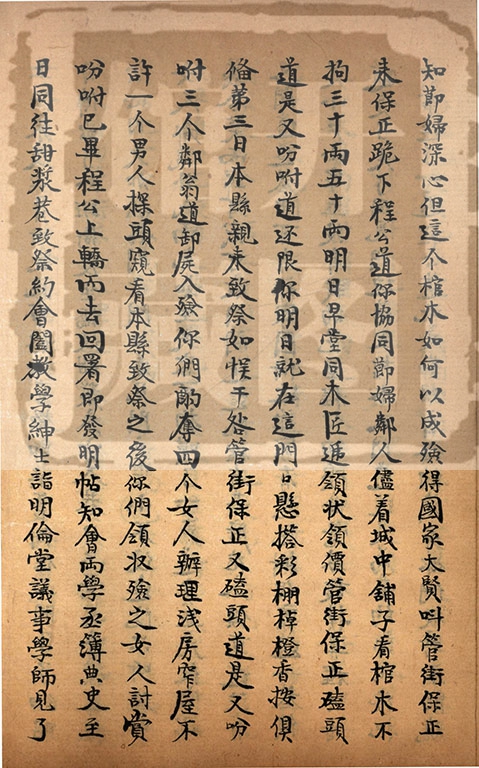 知莭婦深心但這个棺木如何以成殮得國家大賢叫管街保正
来保正跪下程公道你協同莭婦鄰人儘着城中舖子看棺木不
拘三十両五十両明日早堂同木匠逓領状領價管街保正磕頭
道是又吩咐道还限你明日就在這門口懸搭彩棚棹橙香按俱
俻第三日本縣親来致祭如悮干咎管街保正又磕頭道是又吩
咐三个鄰翁道卸屍入殮你們酌奪四个女人辦理浅房窄屋不
許一个男人探頭窺看本縣致祭之後你們領収殮之女人討賞
吩咐已畢程公上轎而去回署即發明帖知會両學丞簿典史至
日同往甜漿巷致祭約會闔學紳士詣明倫堂議事學師見了